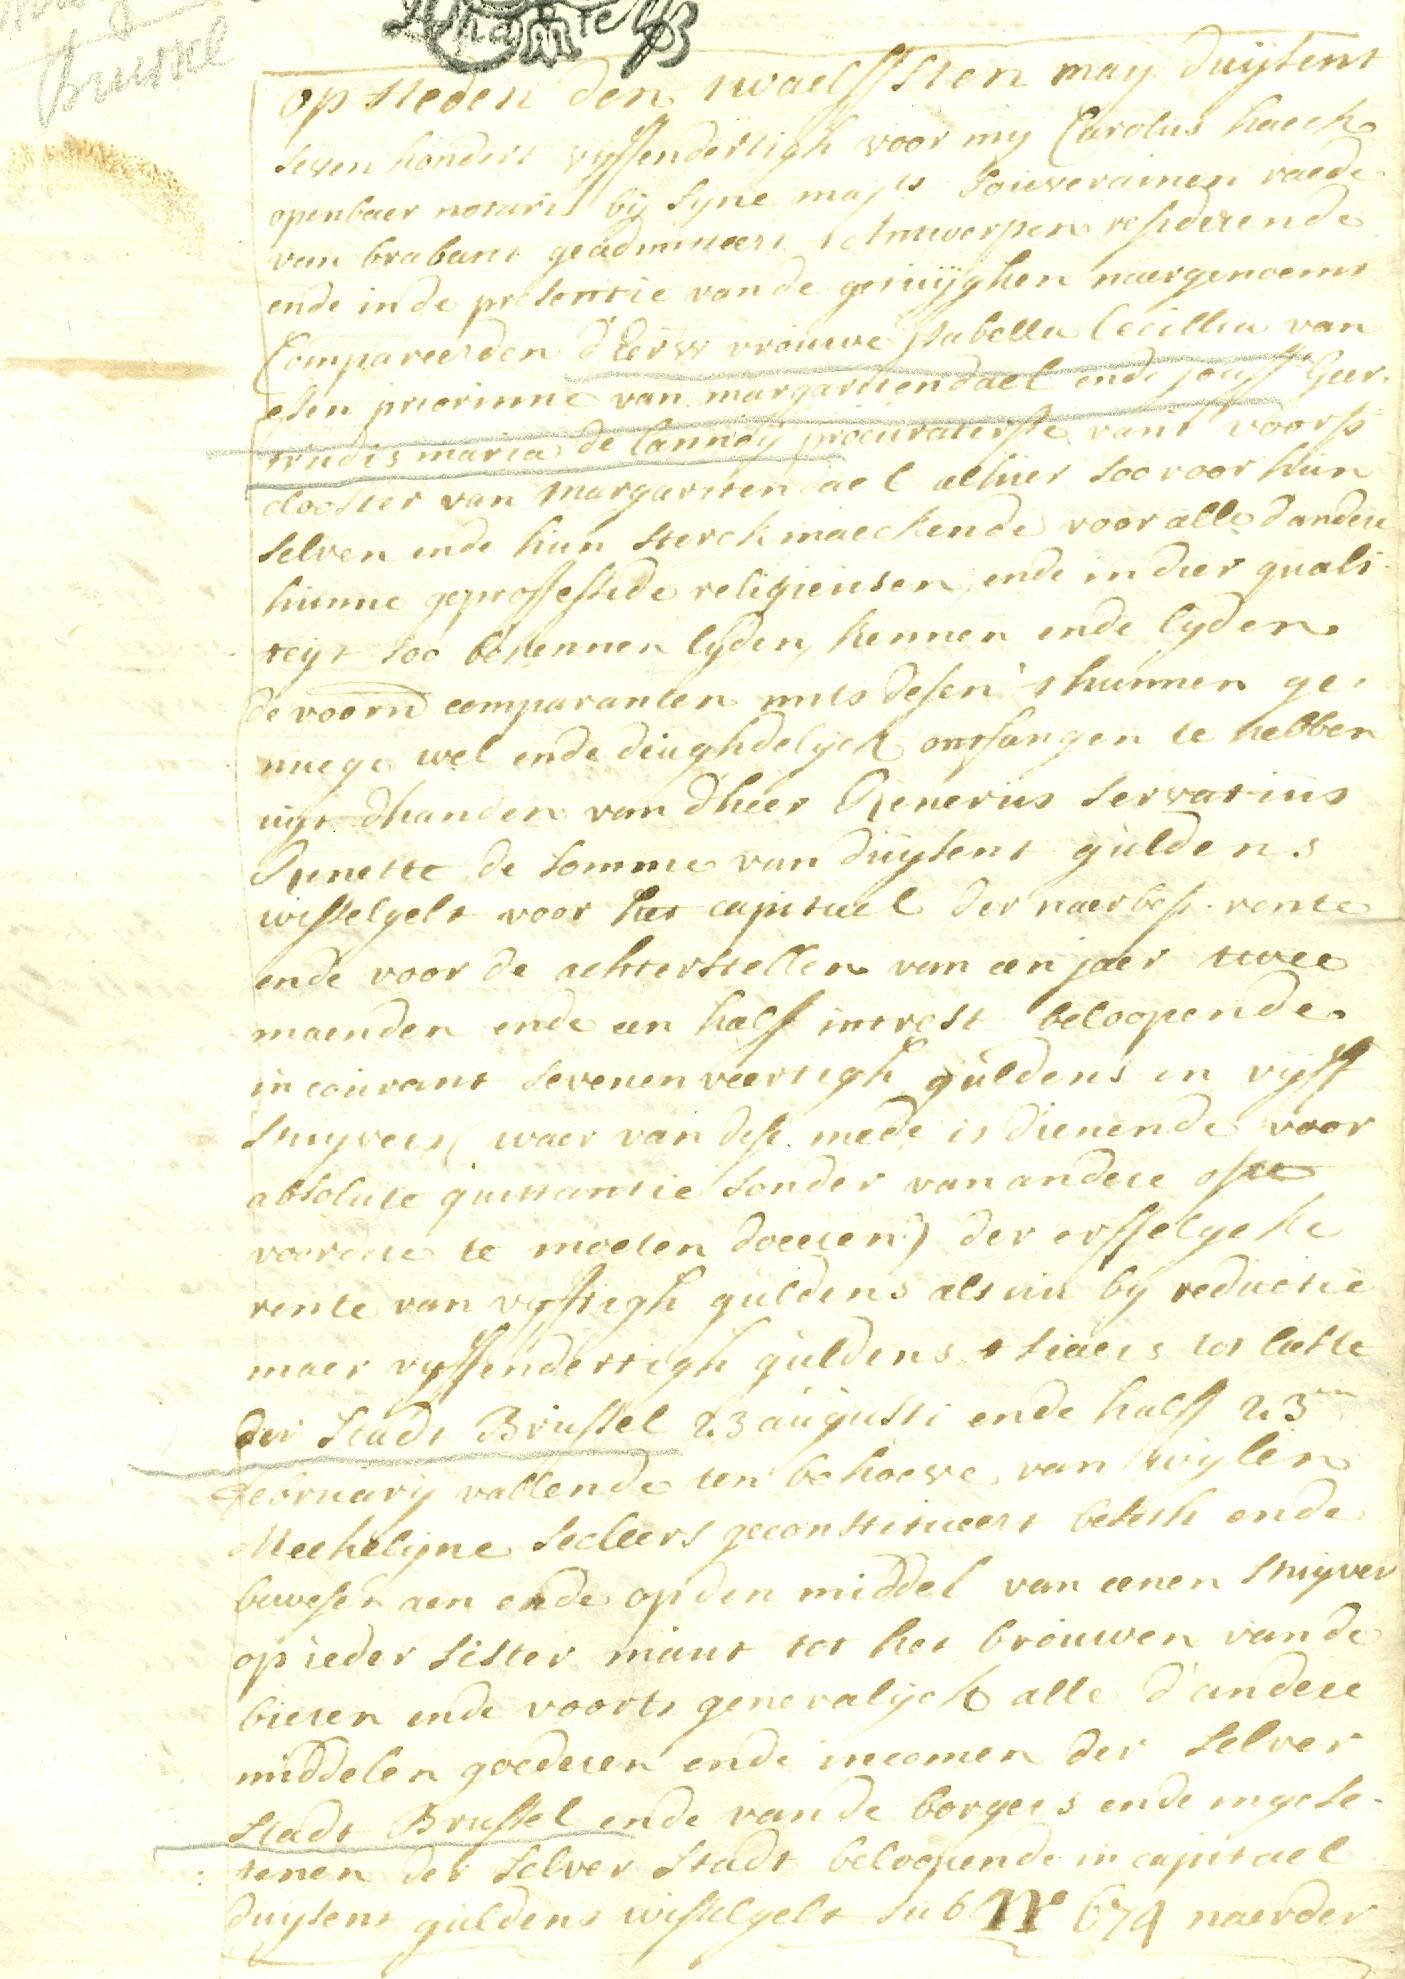 Brussel
op heden den twaelffsten maij duijsent
seven hondert vyffendertigh voor mij Carolus haeck
openbaer notaris bij syne majts souverainen raede
van brabant geadmitteert t Antwerpen residerende
ende in de presentie van de getuijghen naergenoemt
Compareerden d'Eerw vrouwe Isabella Cecillia van
esen priorinne van margaritendael ende jouffe Geer-
trudis maria de Lannoy procuraterse vant voorss
clooster van Margariten dael alhier soo voor hun
selven ende hun sterckmaeckende voor alle d'andere
hunne geprofesside religieusen, ende in dier quali-
teyt soo bekennen lyden, kennen ende lyden
de voorn comparanten mits desen t'hunnen ge-
nuege wel ende deughdelyck ontfangen te hebben
uyt dhanden van dheer Renerius Servatius
Runette de somme van duijsent guldens
wisselgelt voor het capitael der naerbes. rente
ende voor de achterstellen van een jaer twee
maenden ende een half intrest beloopende
in courant sevenenveertigh guldens en vyff
stuyvers, (waer van dese mede is dienende voor
absolute quittantie sonder van andere ofte
voordere te moeten doceren) der erffelycke
rente van vyfftigh guldens alsnu by reductie
maer vyffendertigh guldens t siaers tot laste
der Stadt Brussel 23 augusti ende half 23en
february vallende ten behoeve van wylen
Mechelyne Seclers geconstitueert beseth ende
bewesen aen ende op den middel van eenen stuyver
op ieder sister maut tot het brouwen van de
bieren ende voorts generalyck alle d'andere
middelen goederen ende incomen der selver
Stadt Brussel ende van de borgers ende ingese-
tenen der selver Stadt beloopende in capitael
duysent guldens wisselgelt sub No 674 naerder